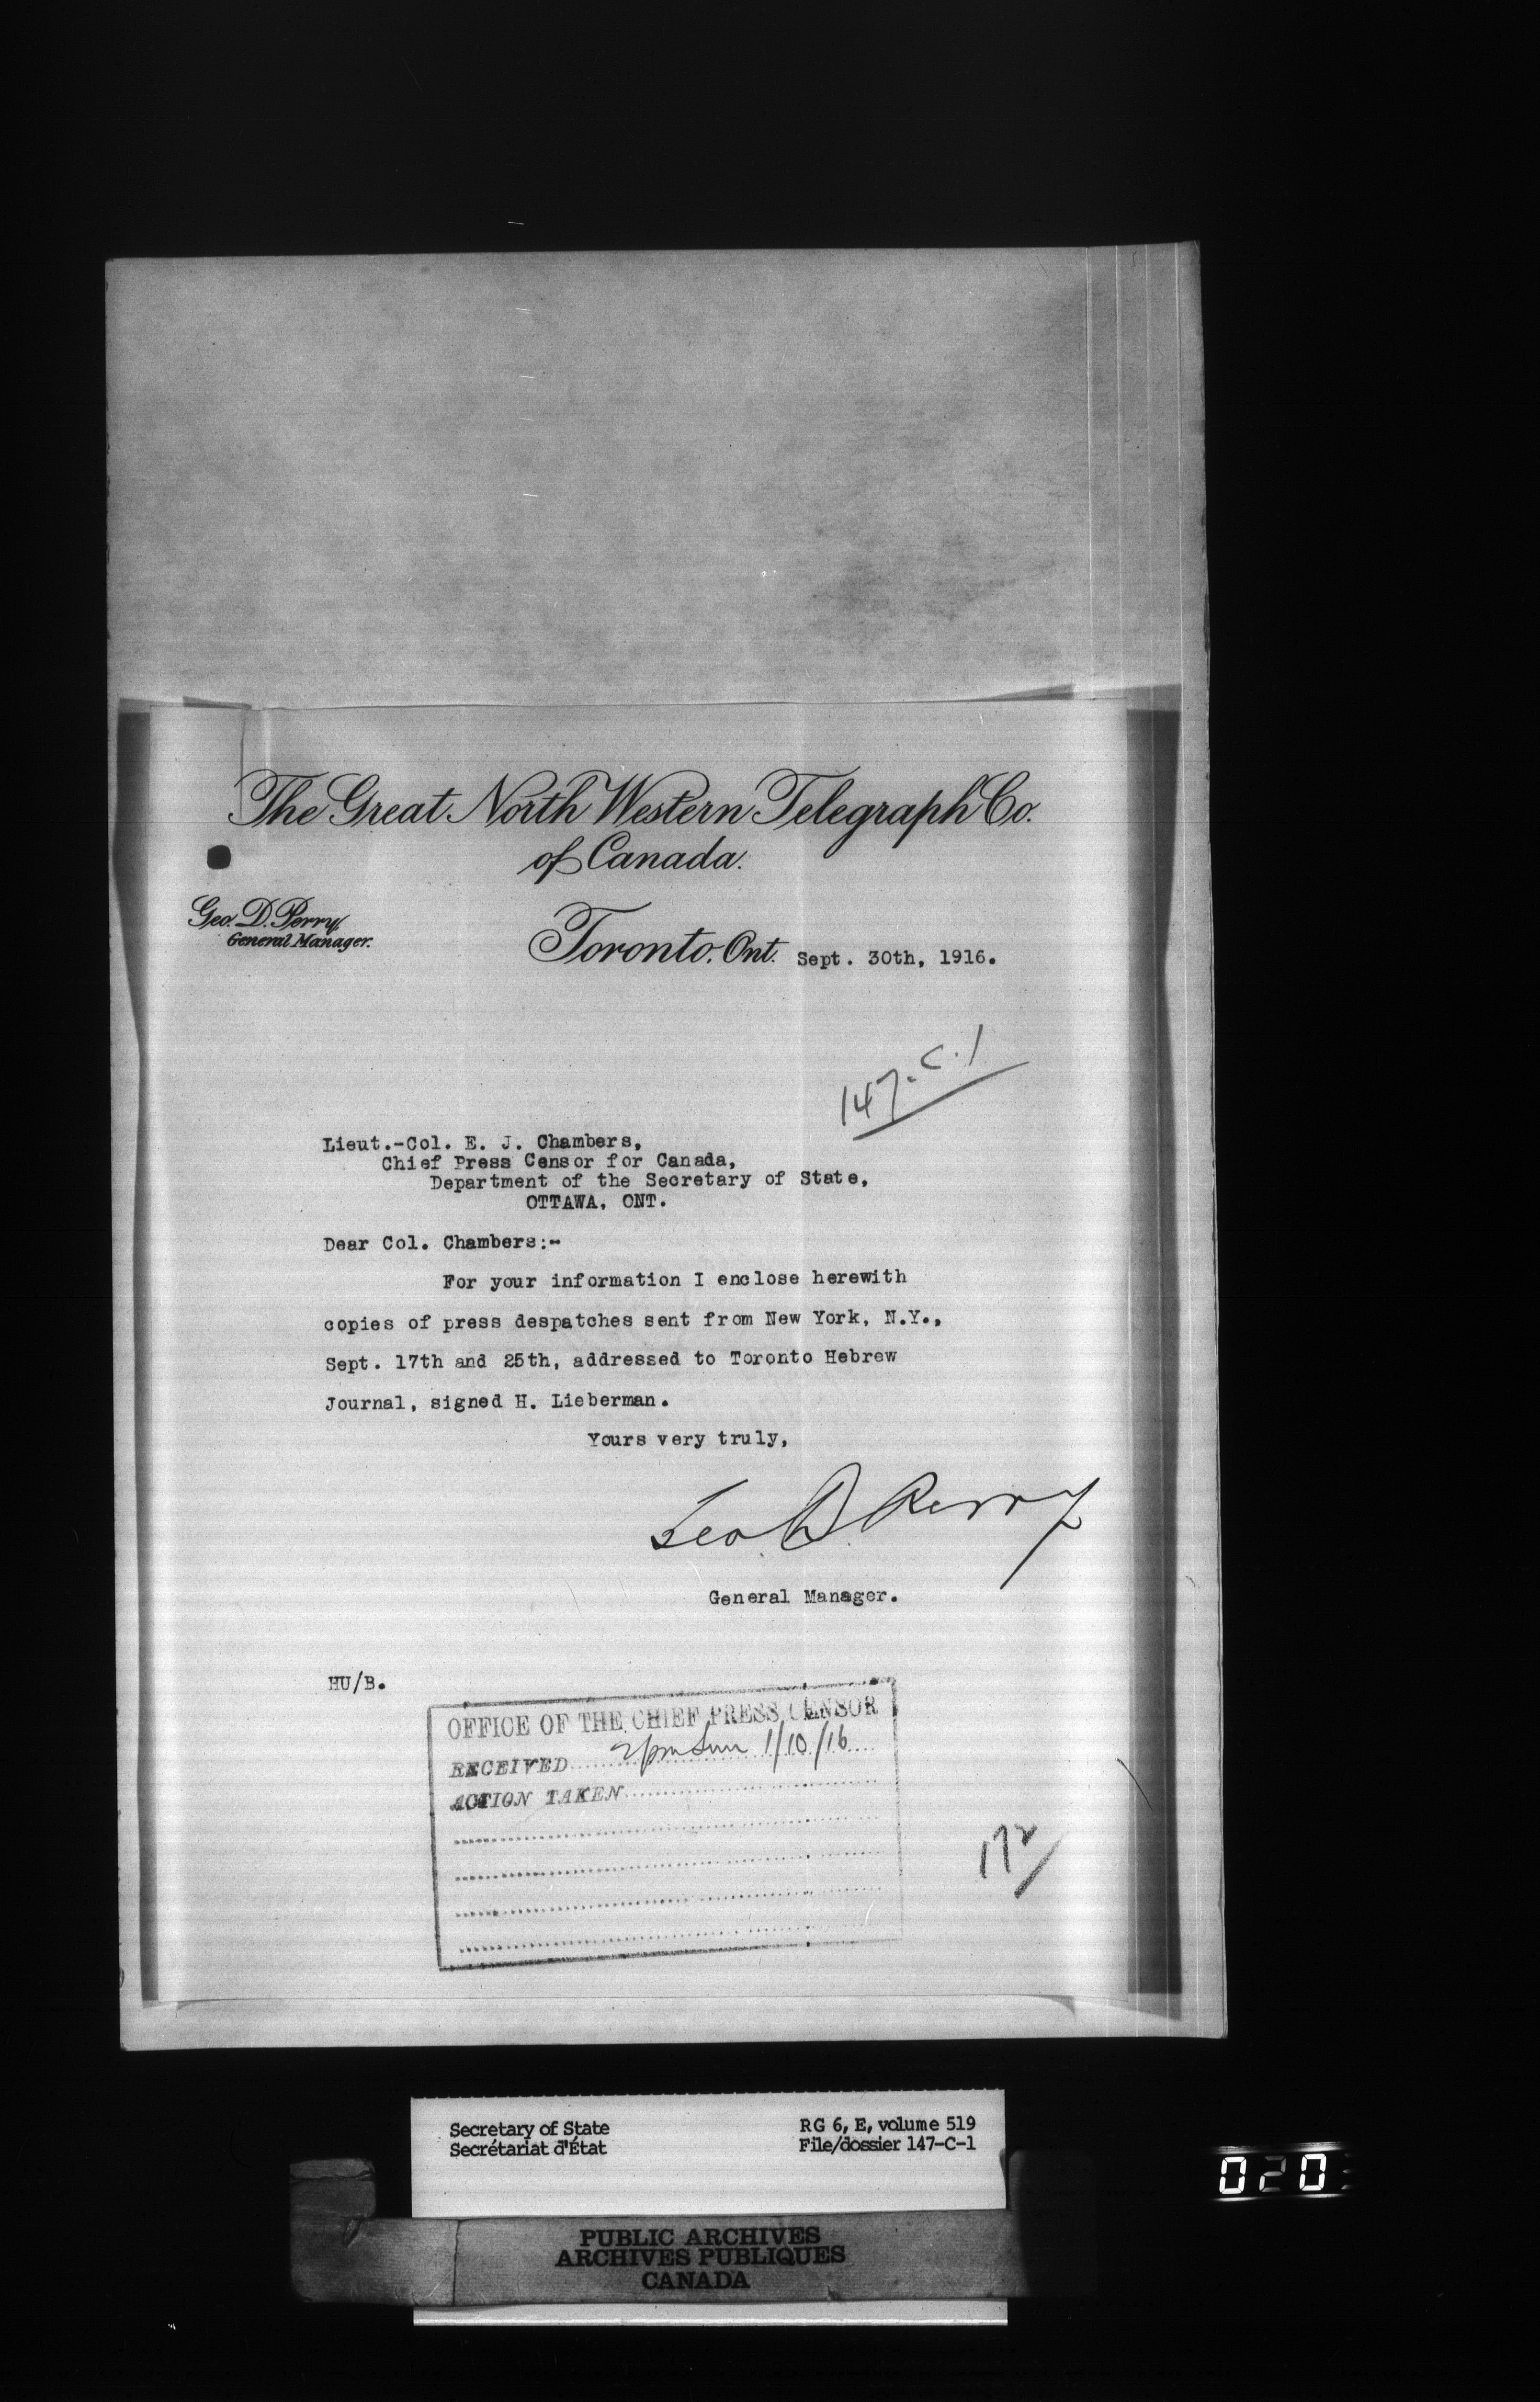 The Great North Western Telegraph Co.
of Canada.
Geo. D. Perry,
General Manager.
Toronto, Ont. Sept. 30th, 1916.
147-C-1
Lieut.-Col. E. J. Chambers,
Chief Press Censor for Canada,
Department of the Secretary of State,
OTTAWA, ONT.
Dear Col. Chambers:-
For your information I enclose herewith
copies of press despatches sent from New York, N.Y.,
Sept. 17th and 25th, addressed to Toronto Hebrew
Journal, signed H. Lieberman.
Yours very truly,
Geo. D. Perry
General Manager.
HU/B.
OFFICE OF THE CHIEF PRESS CENSOR
RECEIVED 2pm Sun 1/10/16
ACTION TAKEN
172
Secretary of State
Secrétariat d'État
RG 6, E, volume 519
File/dossier 147-C-1
020
PUBLIC ARCHIVES
ARCHIVES PUBLIQUES
CANADA